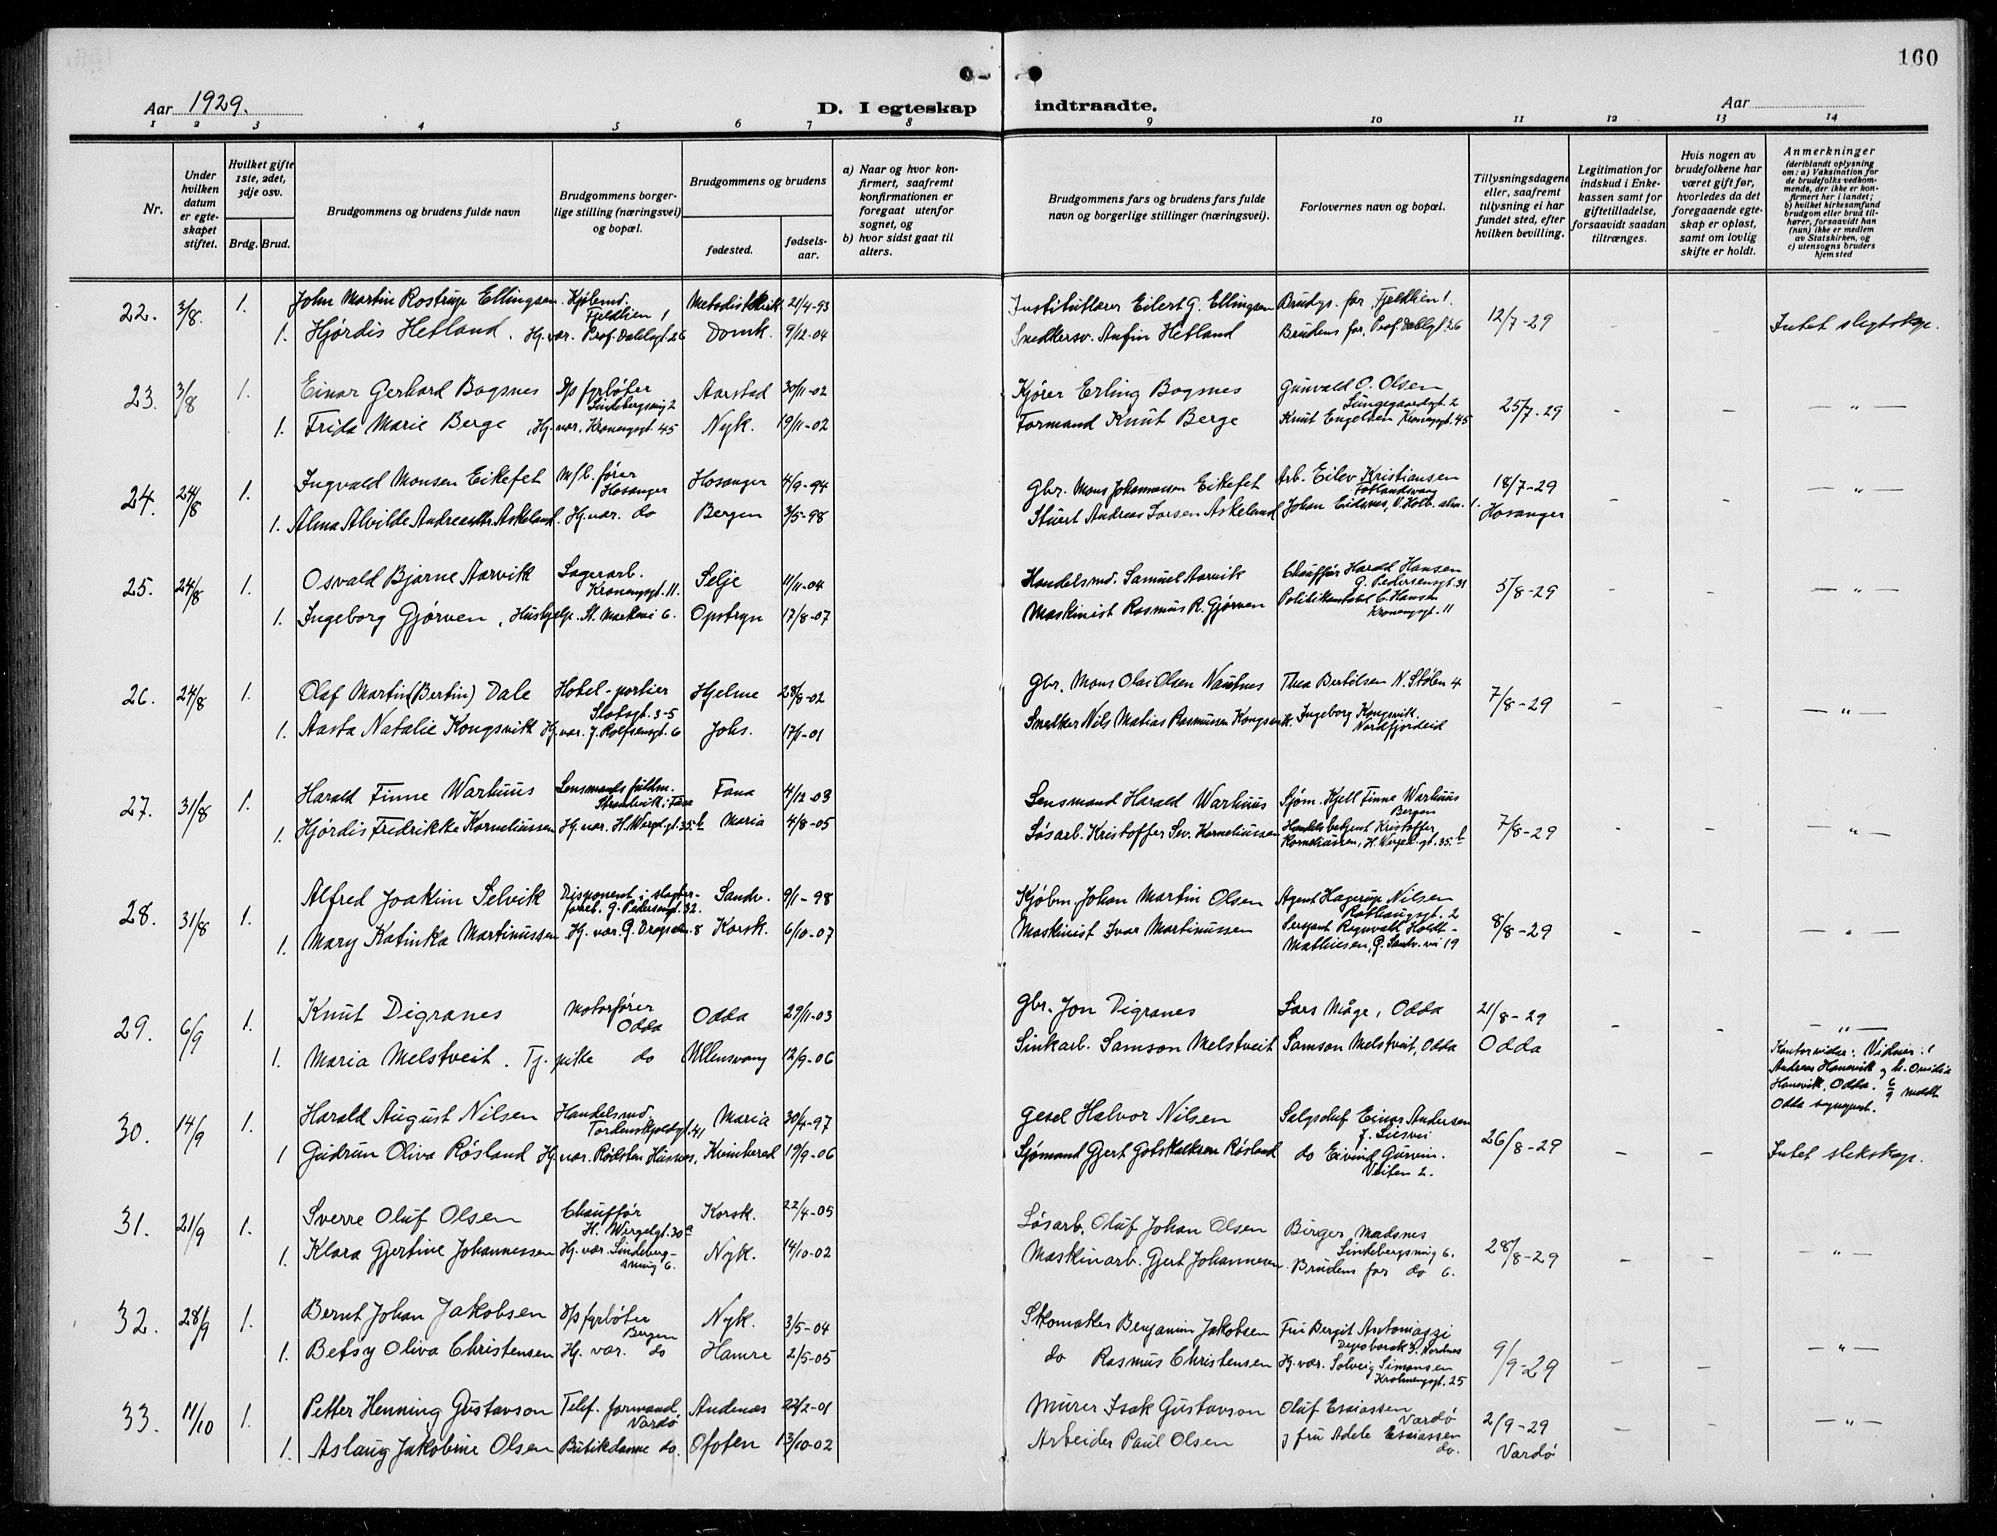 160
Aar 1929.
D. I egteskap indtraadte.
Aar
1 2 3 4 5 6 7 8 9 10 11 12 13 14
Nr.
Under hvilken datum er egteskapet stiftet.
Hvilket gifte 1ste, 2det, 3dje osv.
Brdg. Brud.
Brudgommens og brudens fulde navn
Brudgommens borgerlige stilling (næringsvei) og bopæl.
Brudgommens og brudens
fødested.
fødselsaar.
a) Naar og hvor konfirmert, saafremt konfirmationen er foregaat utenfor sognet, og
b) hvor sidst gaat til alters.
Brudgommens fars og brudens fars fulde navn og borgerlige stillinger (næringsvei).
Forlovernes navn og bopæl.
Tillysningsdagene eller, saafremt tillysning ei har fundet sted, efter hvilken bevilling.
Legitimation for indskud i Enkekassen samt for giftetilladelse, forsaavidt saadan tiltrænges.
Hvis nogen av brudefolkene har været gift før, hvorledes da det foregaaende egteskap er opløst, samt om lovlig skifte er holdt.
Anmerkninger
(deriblandt oplysning om: a) Vaksination for de brudefolks vedkommende, der ikke er konfirmert her i landet; b) hvilket kirkesamfund brudgom eller brud tilhører, forsaavidt han (hun) ikke er medlem av Statskirken, og c) utensogns bruders hjemsted
22. 3/8. 1. John Martin Rostrup Ellingsen. Kjøbmd. Fjeldlien 1 Metodistkirk. 21/4-93 Institutlærer Eilert G. Ellingsen Brudgs. far, Fjeldlien 1. 12/7-29 - - Intet slegtskap.
1. Hjørdis Hetland. Hj. vær. Prof. Dahlsgt. 26 Domk. 9/12-04 Snedkersv. Anfin Hetland Brudens far, Prof. Dahlgt. 26
23. 3/8 1. Einar Gerhard Bogsnes D/s fyrbøter Lindebergsmug 2 Aarstad 30/11-02 Kjører Erling Bogsnes Gunvald O. Olsen Lungegaardsgt. 2 25/7-29 - - — „ —
1. Frida Marie Berge, Hj. vær. Kronengsgt. 45 Nyk. 19/11-02 Formand Knut Berge Knut Engelsen Kronengsgt. 45
24. 24/8 1. Ingvald Monsen Eikefet M/b. fører Hosanger Hosanger 4/9-94 Gbr. Mons Johannessen Eikefet Arb. Eilev Kristiansen Fotlandsvaag 18/7-29 Hosanger - - — „ —
1. Alma Alvilde Andreasdtr. Askeland. Hj. vær. do Bergen 3/5-98 Stuert Andreas Larsen Askeland Johan Eidsnes, V. Holb. alm. 1.
25. 24/8 1. Osvald Bjarne Aarvik Lagerarb. Kronengsgt. 11. Selje 11/11-04 Handelsmd. Samuel Aarvik Chauffør Harald Hansen G. Pedersensgt. 31 5/8-29 - - — „ —
1. Ingeborg Gjørven, Hushjelp. St. Markevei 6. Opstryn 17/8-07 Maskinist Rasmus R. Gjørven Politikonstabel C. Hansen Kronengsgt. 11
26. 24/8 1. Olaf Martin (Bertin) Dale Hotel-portier Slotsgt. 3-5 Hjelme 28/8-02 Gbr. Mons Olai Olsen Nautnes Thea Bertelsen N. Stølen 4 7/8-29 - - — „ —
1. Aasta Natalie Kongsvik Hj. vær. J. Rolfsensgt. 6 Johs. 17/1-01 Snedker Nils Matias Rasmussen Kongsvik. Ingeborg Kongsvik. Nordfjordeid
27. 31/8 1. Harald Finne Warhuus Lensmands fuldm. Strandvik i Fana Fana 4/12-03 Lensmand Harald Warhuus Sjøm. Kjell Finne Warhuus Bergen 7/8-29 - - — „ —
1. Hjørdis Fredrikke Korneliussen Hj. vær. H. Wergelgt. 35 b Maria 4/8-05 Løsarb. Kristoffer Sev. Korneliussen Handelsbetjent Kristoffer Korneliussen, H. Wergel. gt. 35. b
28. 31/8 1. Alfred Joakim Selvik Disponent i slagterforr. G. Pedersengt. 32. Sandv. 9/1-98 Kjøbm. Johan Martin Olsen Agent Hagerup Nilsen Rothaugsgt. 2 8/8-29 - - — „ —
1. Mary Katinka Martinussen Hj. vær. G. Dragsalm. 8 Korsk. 6/10-07 Maskinist Ivar Martinussen Sersjant Ragnvald Holdt-Mathiesen, G. Sandv. vei 19
29. 6/9 1. Knut Digranes Motorfører Odda Odda 29/11-03 Gbr. Jon Digranes Lars Måge, Odda 21/8-29 Odda - - — „ —
1. Maria Melstveit. Tj. pike do Ullensvang 12/9-06 Sinkarb. Samson Melstveit Samson Melstveit, Odda
Kontorvidier: Vidner: Andreas Hanevik og M. Ovidia Hanevik, Odda. 6/9 meldt Odda sogneprest.
30. 14/9 1. Harald August Nilsen Handelsmd. Tordenskjoldgt. 41 Maria 30/4-97 Gesel Halvor Nilsen Salgschef Einar Andersen J. Liesvei 26/8-29 - - Intet slekskap.
1 Gudrun Oliva Røsland Hj. vær. Rødsten Husnes, Kvinherad 19/9-06 Sjømand Gjert Gotskalksen Røsland do Eivind Gurvin. Veiten 2.
31. 21/9 1. Sverre Oluf Olsen Chauffør H. Wergelgt. 30 a Korsk. 22/4-05 Løsarb. Oluf Johan Olsen Birger Madsnes Lindebergsmug 6. 28/8-29 - - — „ —
1. Klara Gjertine Johannessen Hj. vær. Lindebergsmug 6. Nyk. 14/10-02 Maskinarb. Gjert Johannessen. Brudens far do 6.
32. 28/9 1. Bernt Johan Jakobsen D/s fyrbøter Bergen Nyk. 3/5-04 Skomaker Benjamin Jakobsen Fru Bergit Antoniazzi Depobarak 3. Nordnes 9/9-29 - - — „ —
1. Betsy Oliva Christensen Hj. vær. do Hamre 2/5-05 do Rasmus Christensen Hj. vær. Solveig Simonsen Krohnengsgt. 25
33. 11/10 1. Petter Henning Gustavson Telef. formand Vardø Andenæs 22/2-01 Murer Isak Gustavson Oluf Esaiassen Vardø 2/9-29 Vardø - - — „ —
1. Aslaug Jakobine Olsen Butikdame do. Ofoten 13/10-02 Arbeider Paul Olsen g fru Adele Esaiassen do.